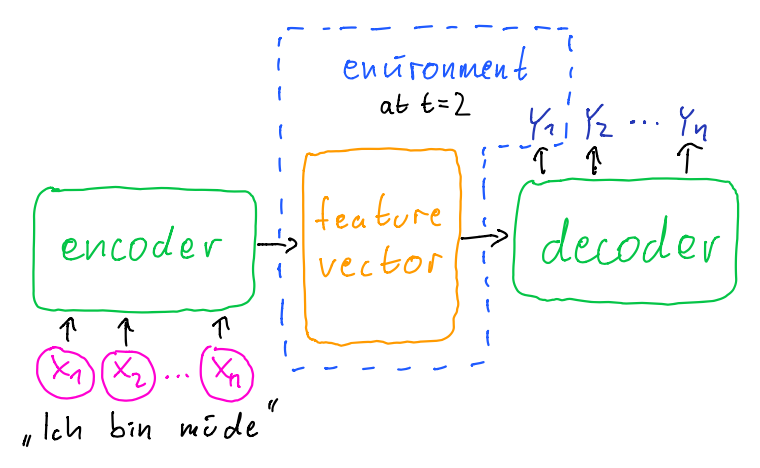 environment
at t=2
Y1 Y2 ... Yn
encoder
feature
vector
decoder
X1 X2 ... Xn
„Ich bin müde“